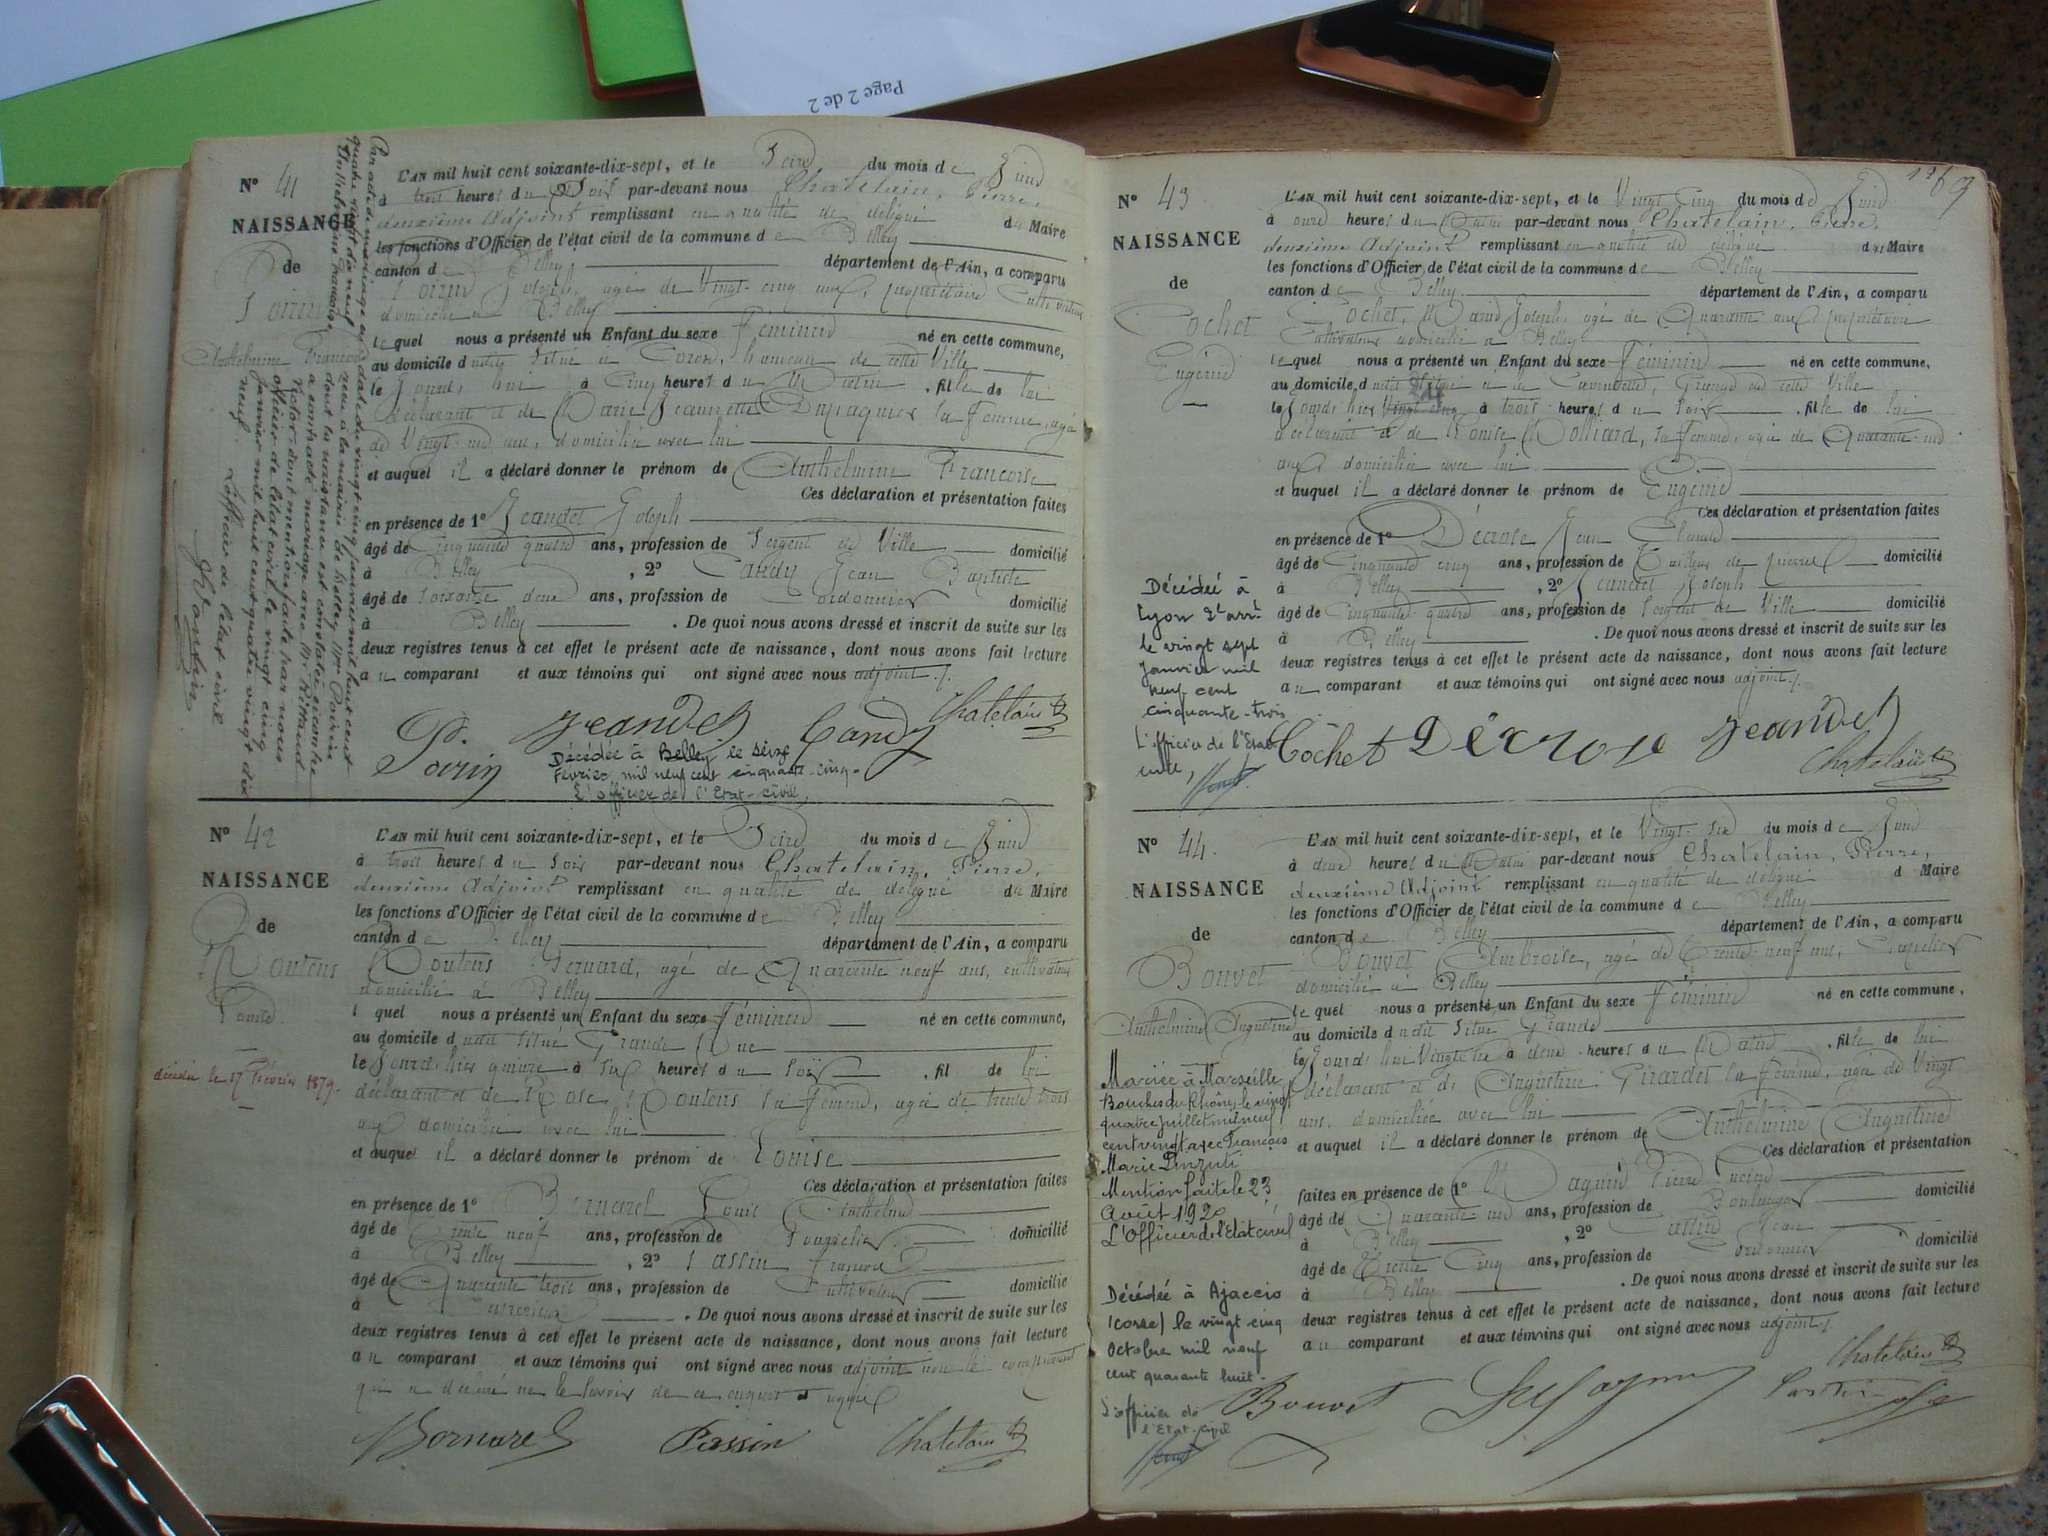 Page 2 de 2
Nº 41
NAISSANCE
de
Poirin
Anthelmine Françoise
L'AN mil huit cent soixante-dix-sept, et le Seize du mois de Juin
à trois heures du Soir par-devant nous Chatelain, Pierre,
deuxième Adjoint remplissant en qualité de délégué du Maire
les fonctions d'Officier de l'état civil de la commune de Belley
canton de Belley département de l'Ain, a comparu
Poirin Joseph, âgé de Vingt-cinq ans, propriétaire Cultivateur
domicilié à Belley
lequel nous a présenté un Enfant du sexe Féminin né en cette commune,
au domicile situé à hameau de cette Ville
le Jourd'hui à Cinq heures du Matin, fille de lui
déclarant et de Marie Jeannette sa femme, âgée
de Vingt-un ans, domiciliée avec lui
et auquel il a déclaré donner le prénom de Anthelmine Françoise
Ces déclaration et présentation faites
en présence de 1º Jeandet Joseph
âgé de Cinquante quatre ans, profession de Sergent de Ville domicilié
à Belley, 2º Candy Jean Baptiste
âgé de soixante deux ans, profession de Cordonnier domicilié
à Belley. De quoi nous avons dressé et inscrit de suite sur les
deux registres tenus à cet effet le présent acte de naissance, dont nous avons fait lecture
au comparant et aux témoins qui ont signé avec nous adjoint ./.
P. Poirin Jeandet Candy Chatelain
Décédée à Belley le seize
Février mil neuf cent cinquante-cinq.
L'officier de l'Etat-civil,
Par acte de mariage en date du vingt cinq janvier mil huit cent
quatre vingt dix neuf reçu à la mairie de Belley, Melle Poirin
Anthelmine Françoise, dont la naissance est constatée ci-contre
a contracté mariage avec Mr
Victor, dont mention faite par nous
officier de l'état civil le vingt cinq
janvier mil huit cent quatre vingt dix
neuf.
L'officier de l'état civil
Nº 42
NAISSANCE
de
Louise
décédée le 17 Février 1879.
L'AN mil huit cent soixante-dix-sept, et le Seize du mois de Juin
à trois heures du Soir par-devant nous Chatelain, Pierre,
deuxième Adjoint remplissant en qualité de délégué du Maire
les fonctions d'Officier de l'état civil de la commune de Belley
canton de Belley département de l'Ain, a comparu
Bernard, âgé de Quarante neuf ans, cultivateur
domicilié à Belley
l quel nous a présenté un Enfant du sexe Féminin né en cette commune,
au domicile situé Grande Rue
le Jourd'hier quinze à Six heures du Soir, fil de lui
déclarant et de Rose sa femme, âgée de trente trois
ans domiciliée avec lui
et auquel il a déclaré donner le prénom de Louise
Ces déclaration et présentation faites
en présence de 1º Bornarel Louis Anthelme
âgé de Trente neuf ans, profession de domicilié
à Belley, 2º Passin François
âgé de Quarante trois ans, profession de Cultivateur domicilié
à. De quoi nous avons dressé et inscrit de suite sur les
deux registres tenus à cet effet le présent acte de naissance, dont nous avons fait lecture
au comparant et aux témoins qui ont signé avec nous adjoint non le comparant
qui a déclaré ne le savoir de ce enquis et requis
Bornarel Passin Chatelain
Nº 43
NAISSANCE
de
Cochet
Eugénie
L'AN mil huit cent soixante-dix-sept, et le Vingt Cinq du mois de Juin
à onze heures du Matin par-devant nous Chatelain, Pierre,
deuxième Adjoint remplissant en qualité de délégué du Maire
les fonctions d'Officier de l'état civil de la commune de Belley
canton de Belley département de l'Ain, a comparu
Cochet, Marie Joseph, âgé de Quarante ans, propriétaire
Cultivateur domicilié à Belley
lequel nous a présenté un Enfant du sexe Féminin né en cette commune,
au domicile situé à la Grange de cette Ville
le Jourd'hier Vingt cinq à trois heures du Soir, fille de lui
déclarant et de Louise Molliard, sa femme, âgée de Quarante-un
ans domiciliée avec lui
et auquel il a déclaré donner le prénom de Eugénie
Ces déclaration et présentation faites
en présence de 1º Décrose Jean Claude
âgé de Cinquante cinq ans, profession de Tailleur de pierres domicilié
à Belley, 2º Jeandet Joseph
âgé de Cinquante-quatre ans, profession de Sergent de Ville domicilié
à Belley. De quoi nous avons dressé et inscrit de suite sur les
deux registres tenus à cet effet le présent acte de naissance, dont nous avons fait lecture
au comparant et aux témoins qui ont signé avec nous adjoint ./.
Décédée à
Lyon 2e arrt
le vingt sept
Janvier mil
neuf cent
cinquante-trois
L'officier de l'Etat
civil,
Cochet Décrose Jeandet
Chatelain
Nº 44.
NAISSANCE
de
Bouvet
Anthelmine Augustine
L'AN mil huit cent soixante-dix-sept, et le Vingt-Six du mois de Juin
à deux heures du par-devant nous Chatelain, Pierre,
deuxième Adjoint remplissant en qualité de délégué d Maire
les fonctions d'Officier de l'état civil de la commune de Belley
canton de Belley département de l'Ain, a comparu
Bouvet Ambroise, âgé de Trente-neuf ans, Chapelier
domicilié à Belley
lequel nous a présenté un Enfant du sexe Féminin né en cette commune,
au domicile situé Grande
le Jourd'hui Vingt six à deux heures du Matin, fille de lui
déclarant et de Augustine Girardet sa femme, âgée de Vingt
ans, domiciliée avec lui
et auquel il a déclaré donner le prénom de Anthelmine Augustine
Ces déclaration et présentation
faites en présence de 1º Magnin Pierre
âgé de Quarante-un ans, profession de Boulanger domicilié
à Belley, 2º Jean
âgé de Trente Cinq ans, profession de Cordonnier domicilié
à Belley. De quoi nous avons dressé et inscrit de suite sur les
deux registres tenus à cet effet le présent acte de naissance, dont nous avons fait lecture
au comparant et aux témoins qui ont signé avec nous adjoint ./.
Mariée à Marseille
Bouches du Rhône, le vingt
quatre juillet mil neuf
cent vingt avec François
Marie Pinzuti
Mention faite le 23
Août 1920
L'Officier de l'Etat civil
Décédée à Ajaccio
(Corse) le vingt cinq
octobre mil neuf
cent quarante huit.
L'officier de
l'Etat-civil
Bouvet Chatelain